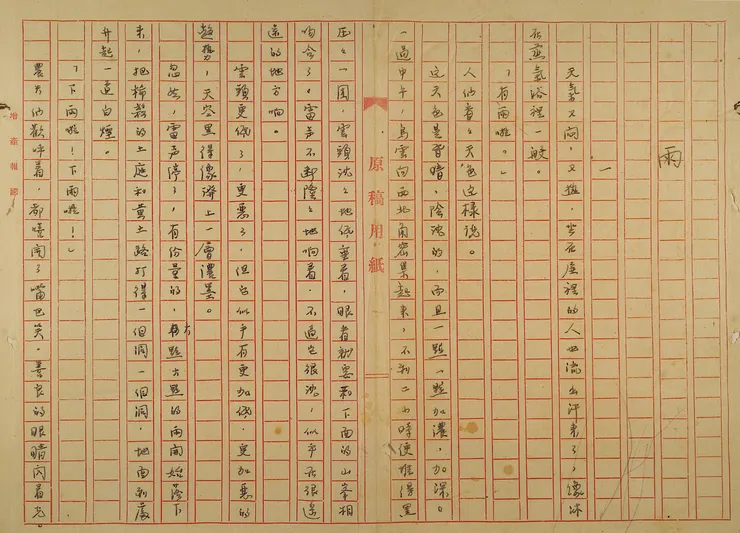 雨
一
天氣又悶，又熱，坐在屋裡的人也流出汗來了，像坐
在蒸氣浴裡一般。
「有雨啦。」
人們看了天色這樣說。
這天色是昏暗，陰沈的，而且一點一點加濃，加深。
一過中午，烏雲向西北角密集起來，不到二小時便堆得黑
原稿用紙
壓壓一團，雲頭沈沈地低垂着，眼看就要和下面的山峯相
吻合了。雷声不斷陰陰地响着，不過它很沈，似乎在很遠
遠的地方响。
雲頭更低了，更惡了，但它似乎有更加低，更加惡的
趨勢，天空黑得像潑上一層濃墨。
忽然，雷声停了，有份量的，大點大點的雨開始落下
來，把稀鬆的土庭和黃土路打得一個洞一個洞，地面到處
升起一道白煙。
「下雨啦！下雨啦！」
農夫們歡呼着，都咧開了嘴巴笑，善良的眼睛閃着光。